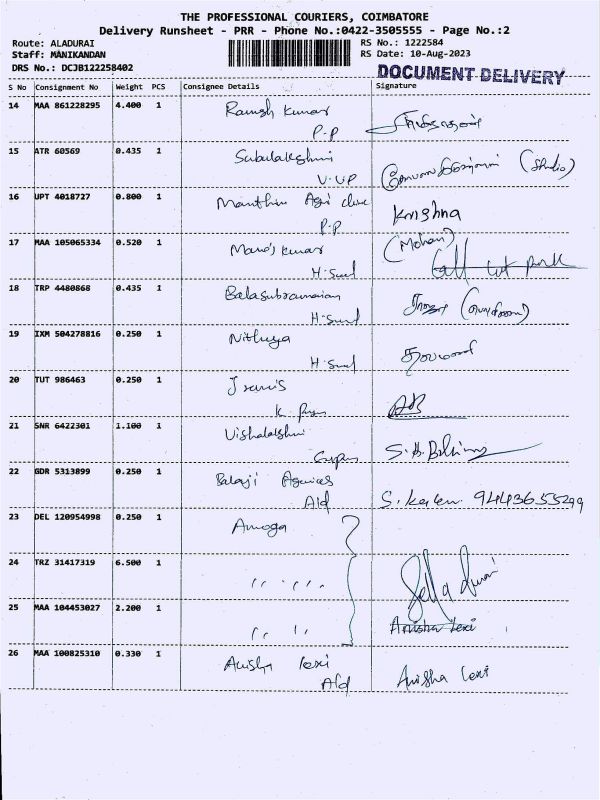 THE PROFESSIONAL COURIERS, COIMBATORE
Delivery Runsheet - PRR - Phone No.:0422-3505555 - Page No.:2
Route: ALADURAI RS No.: 1222584
Staff: MANIKANDAN RS Date: 10-Aug-2023
DRS No.: DCJB122258402
DOCUMENT DELIVERY
S No Consignment No Weight PCS Consignee Details Signature
14 MAA 861228295 4.400 1 Ramesh Kumar
P.P
15 ATR 60569 0.435 1 Subulakshmi
V.VP (Studio)
16 UPT 4018727 0.800 1 Manthim Agri clinic Krishna
P.P
17 MAA 105065334 0.520 1 Manoj kumar (Mohan)
H.Sud
18 TRP 4480868 0.435 1 Balasubramanian
H.Sud
19 IXM 504278816 0.250 1 Nithya
H.Sud
20 TUT 986463 0.250 1
K
21 SNR 6422301 1.100 1 Vishalakshmi
22 GDR 5313899 0.250 1 Balaji Agencies
Ald S. 9443655299
23 DEL 120954998 0.250 1 Amoga
24 TRZ 31417319 6.500 1 " " Sella
25 MAA 104453027 2.200 1 " " Anisha lexi
26 MAA 100825310 0.330 1 Anisha lexi
Ald Anisha lexi